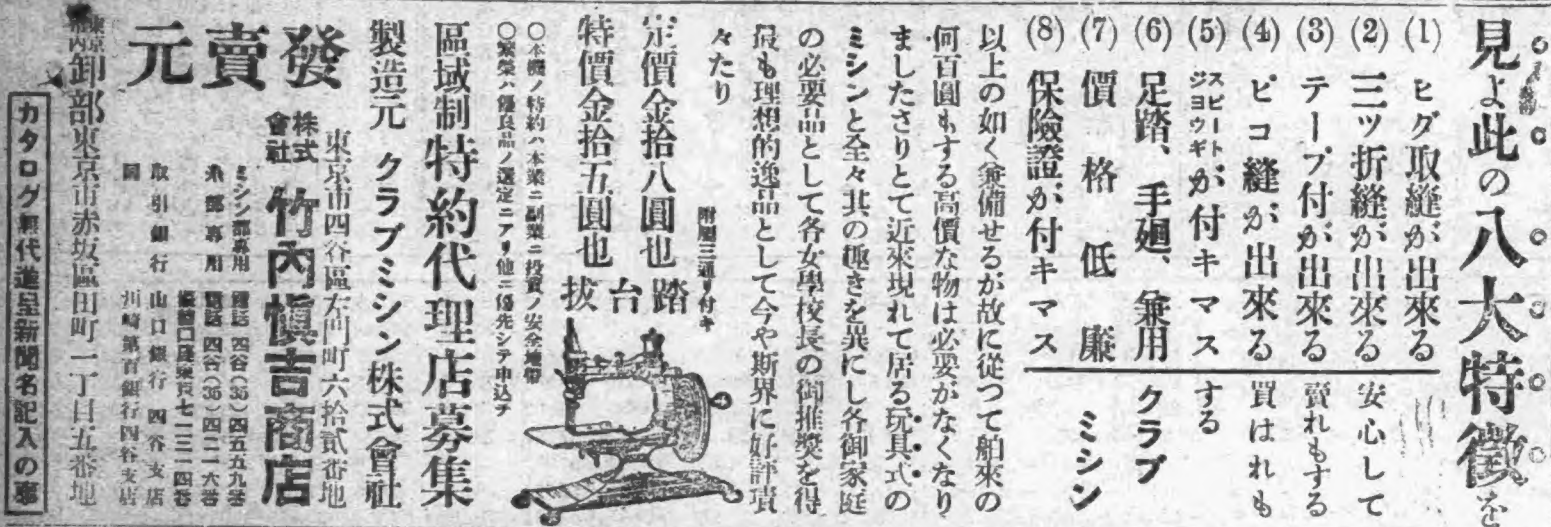 見よ此の八大特徴を
(1) ヒダ取縫が出來る
(2) 三ツ折縫が出來る
(3) テープ付が出來る
(4) ピコ縫が出來る
(5) スピートジヨウギが付キマス
(6) 足踏、手廻、兼用
(7) 價格低廉
(8) 保險證が付キマス
安心して
賣れもする
買はれも
する
クラブ
ミシン
以上の如く兼備せるが故に從つて舶來の
何百圓もする高價な物は必要がなくなり
ましたさりとて近來現れて居る玩具式の
ミシンと全々其の趣きを異にし各御家庭
の必要品として各女學校長の御推奬を得
最も理想的逸品として今や斯界に好評嘖
々たり
附屬三通リ付キ
定價金拾八圓也
特價金拾五圓也
踏台拔
○本機ノ特約ハ本業ニ副業ニ投資ノ安全地帶
○繁榮ハ優良品ノ選定ニアリ他ニ優先シテ申込ヲ
區域制特約代理店募集
製造元 クラブミシン株式會社
發賣元
東京市四谷區左門町六拾貳番地
株式會社 竹内愼吉商店
ミシン部專用 電話 四谷(35)四五五九番
糸部專用 電話 四谷(35)四二一六番
振替口座東京七一三一四番
取引銀行 山口銀行 四谷支店
同 川崎第百銀行四谷支店
東京市内卸部東京市赤坂區田町一丁目五番地
カタログ無代進呈新聞名記入の事